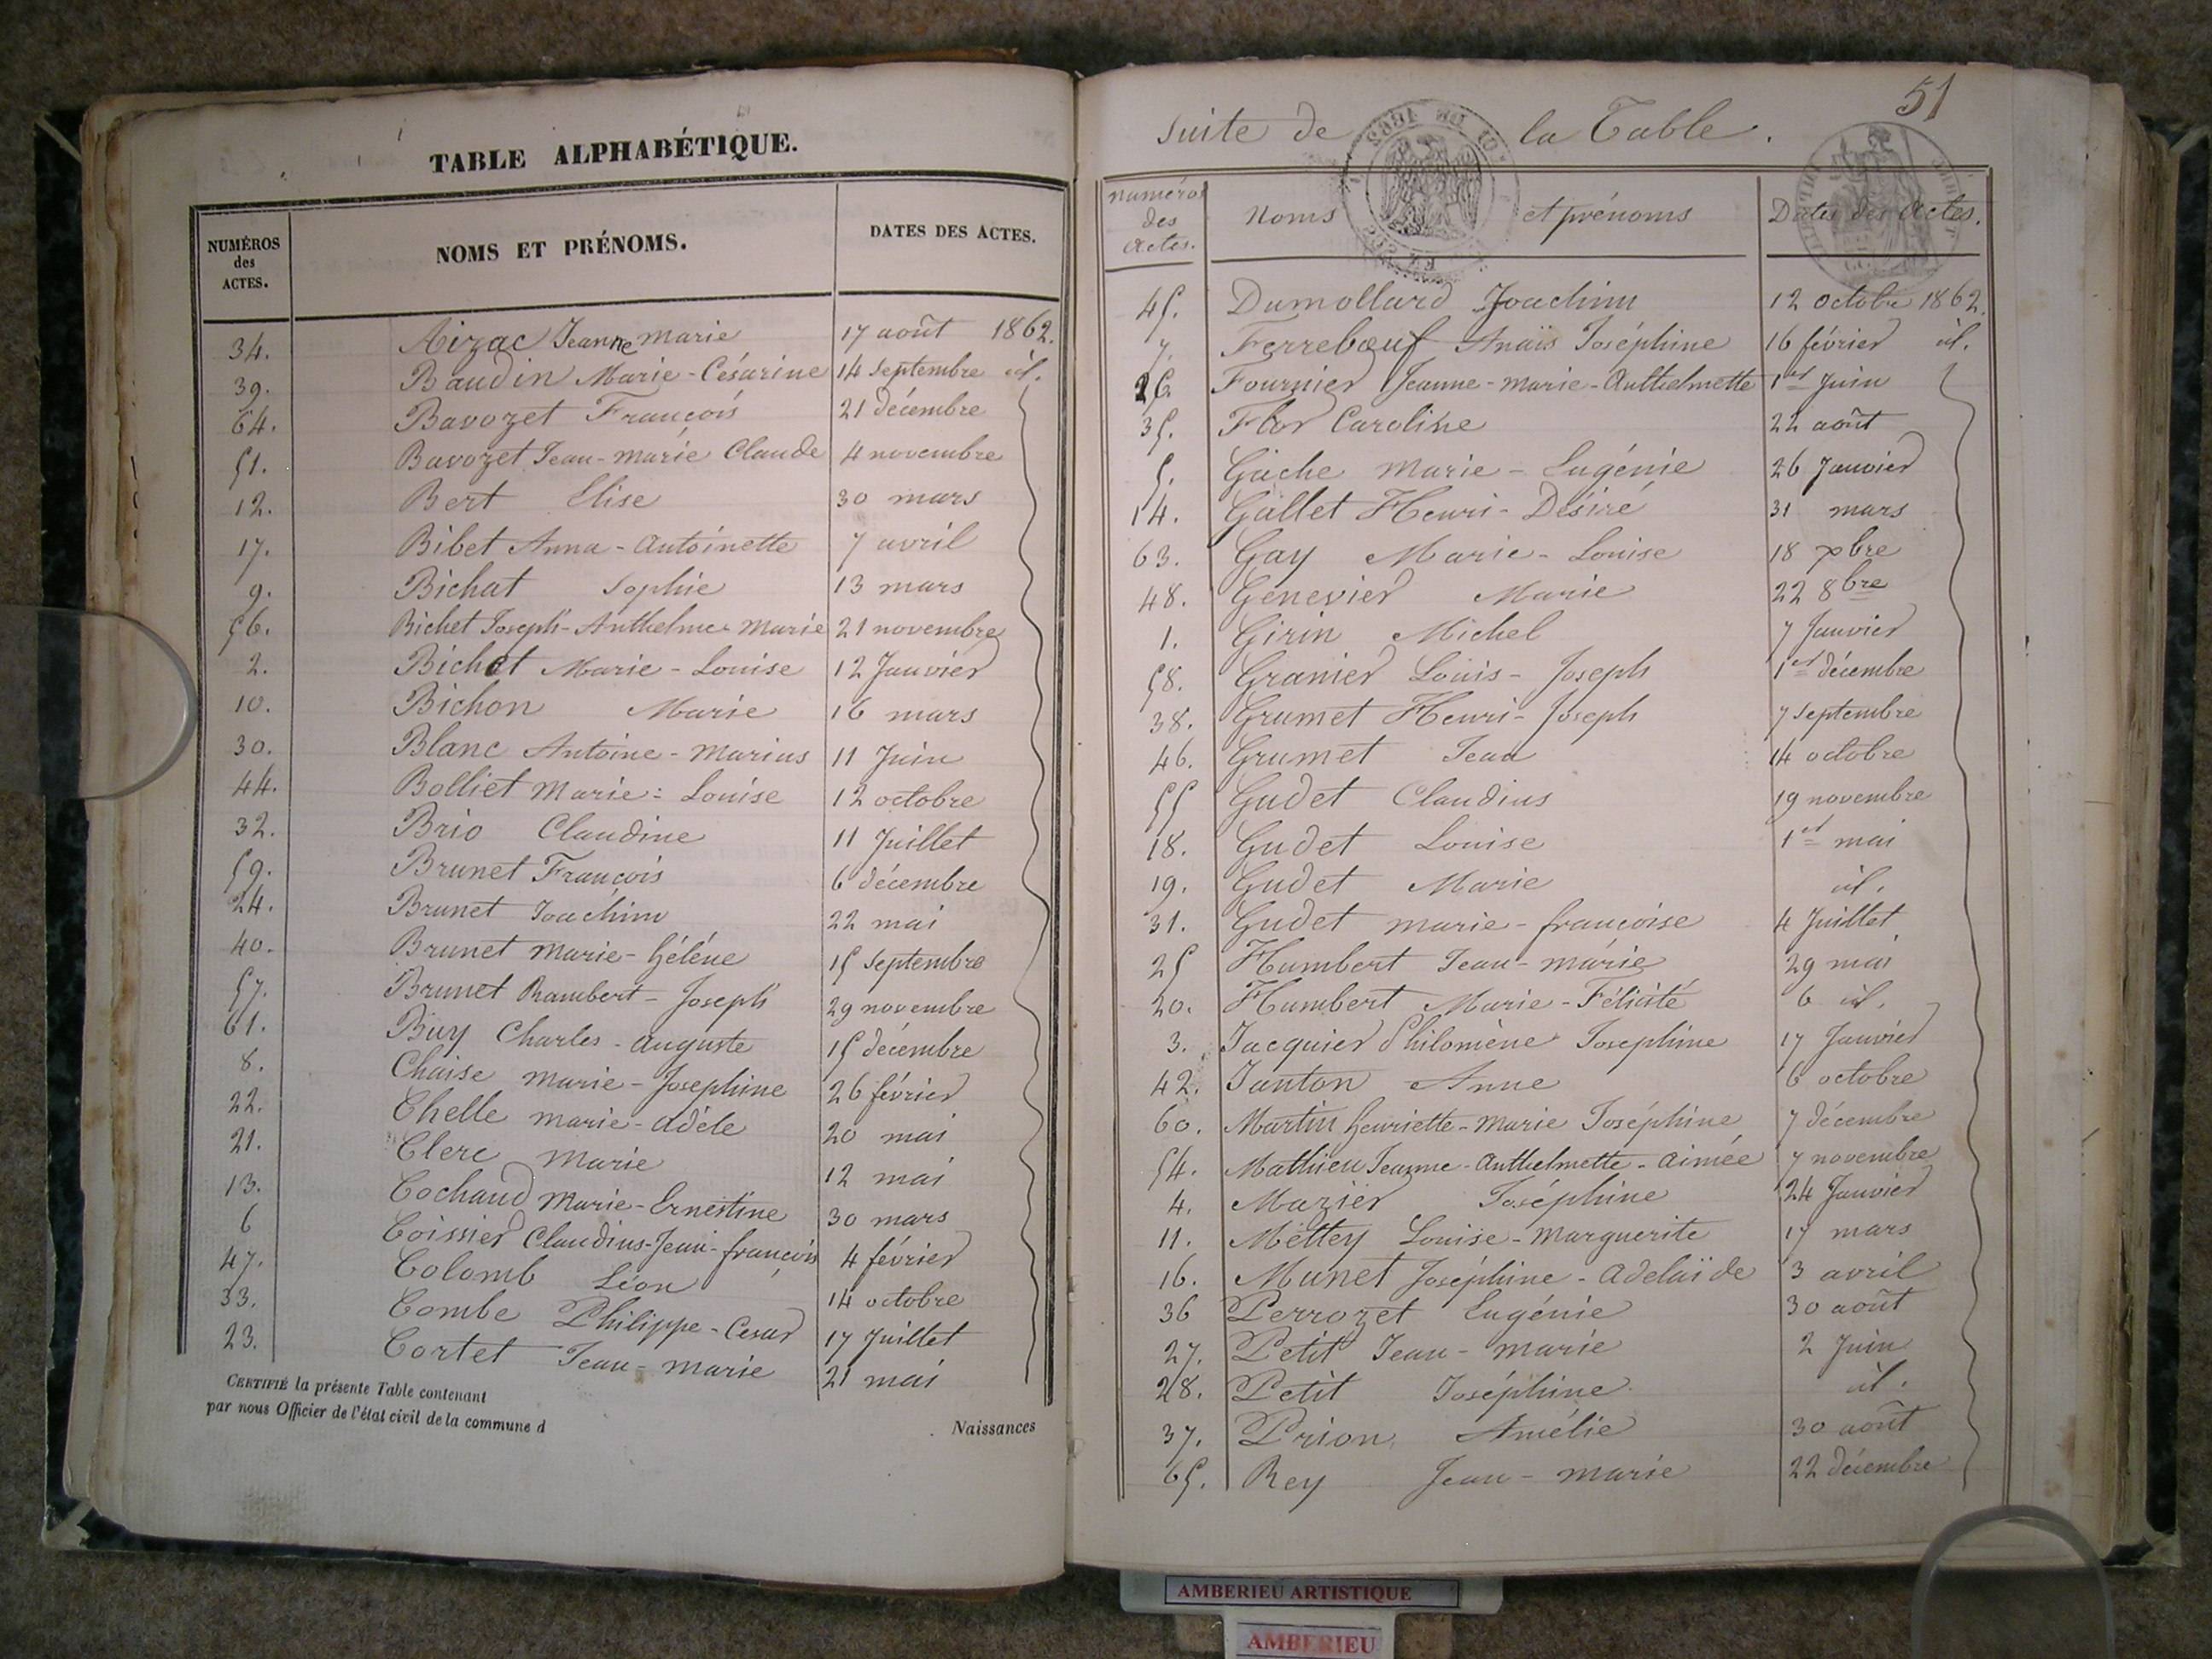 TABLE ALPHABÉTIQUE.
NUMÉROS des ACTES. NOMS ET PRÉNOMS. DATES DES ACTES.
34. Aizac Jeanne marie 17 août 1862.
39. Baudin Marie-Césarine 14 septembre id.
64. Bavozet François 21 décembre
51. Bavozet Jean-marie Claude 4 novembre
12. Bert Elise 30 mars
17. Bibet Anna-Antoinette 7 avril
9. Bichat Sophie 13 mars
56. Bichet Joseph-Anthelme Marie 21 novembre
2. Bichet Marie-Louise 12 Janvier
10. Bichon Marie 16 mars
30. Blanc Antoine-Marius 11 Juin
44. Bolliet Marie-Louise 12 octobre
32. Brio Claudine 11 Juillet
59. Brunet François 6 décembre
24. Brunet Joachim 22 mai
40. Brunet Marie-hélène 15 septembre
57. Brunet Rambert-Joseph 29 novembre
61. Buy Charles-auguste 15 décembre
8. Chaise Marie-Josephine 26 février
22. Chelle marie-adèle 20 mai
21. Clerc Marie 12 mai
13. Cochaud Marie-Ernestine 30 mars
6 Coissier Claudius-Jean-françois 4 février
47. Colomb Léon 14 octobre
33. Combe Philippe-Cesar 17 Juillet
23. Cortet Jean-marie 21 mai
CERTIFIÉ la présente Table contenant
par nous Officier de l'état civil de la commune d
Naissances
51
Suite de la Table.
numéros des actes. Noms et prénoms Dates des actes.
45. Dumollard Joachim 12 octobre 1862.
7. Ferrebœuf Anaïs Joséphine 16 février id.
26. Fournier Jeanne-marie-Anthelmette 1er Juin
35. Flor Caroline 22 août
5. Gâche Marie-Eugénie 26 Janvier
14. Gallet Henri-Désiré 31 mars
63. Gay Marie-Louise 18 xbre
48. Genevier Marie 22 8bre
1. Girin Michel 7 Janvier
58. Granier Louis-Joseph 1er décembre
38. Grumet Henri-Joseph 7 septembre
46. Grumet Jean 14 octobre
55 Gudet Claudius 19 novembre
18. Gudet Louise 1er mai
19. Gudet Marie id.
31. Gudet marie-françoise 4 Juillet
25 Humbert Jean-marie 29 mai
20. Humbert Marie-Félicité 6 id.
3. Jacquier Philomène Josephine 17 Janvier
42. Janton Anne 6 octobre
60. Martin henriette-Marie Joséphine 7 décembre
54. Mathieu Jeanne-Anthelmette-aimée 7 novembre
4. Mazier Joséphine 24 Janvier
11. Mettey Louise-Marguerite 17 mars
16. Munet Joséphine-Adelaïde 3 avril
36 Perrozet Eugénie 30 août
27. Petit Jean-marie 2 Juin
28. Petit Joséphine id.
37. Prion Amélie 30 août
65. Rey Jean-marie 22 décembre
AMBERIEU ARTISTIQUE
AMBERIEU